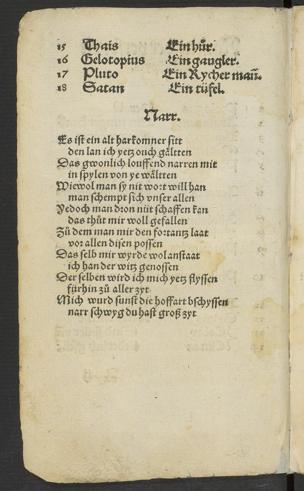 15 Thais Ein hůr.
16 Gelotopius Ein gaugler.
17 Pluto Ein Rycher mañ.
18 Satan Ein tüfel.
Narr.
Es ist ein alt harkomner sitt
den lan ich yetz ouch gåltten
Das gwonlich louffend narren mit
in spylen von ye wåltten
Wiewol man sy nit wort will han
man schempt sich vnser allen
Yedoch man dron nüt schaffen kan
das thůt mir woll gefallen
Zů dem man mir den fortantz laat
vor allen disen possen
Das selb mir wyrde wol anstaat
ich han der witz genossen
Der selben wird ich mich yetz flyssen
fürhin zů aller zyt
Mich wurd sunst die hoffart bschyssen
narr schwyg du hast groß zyt